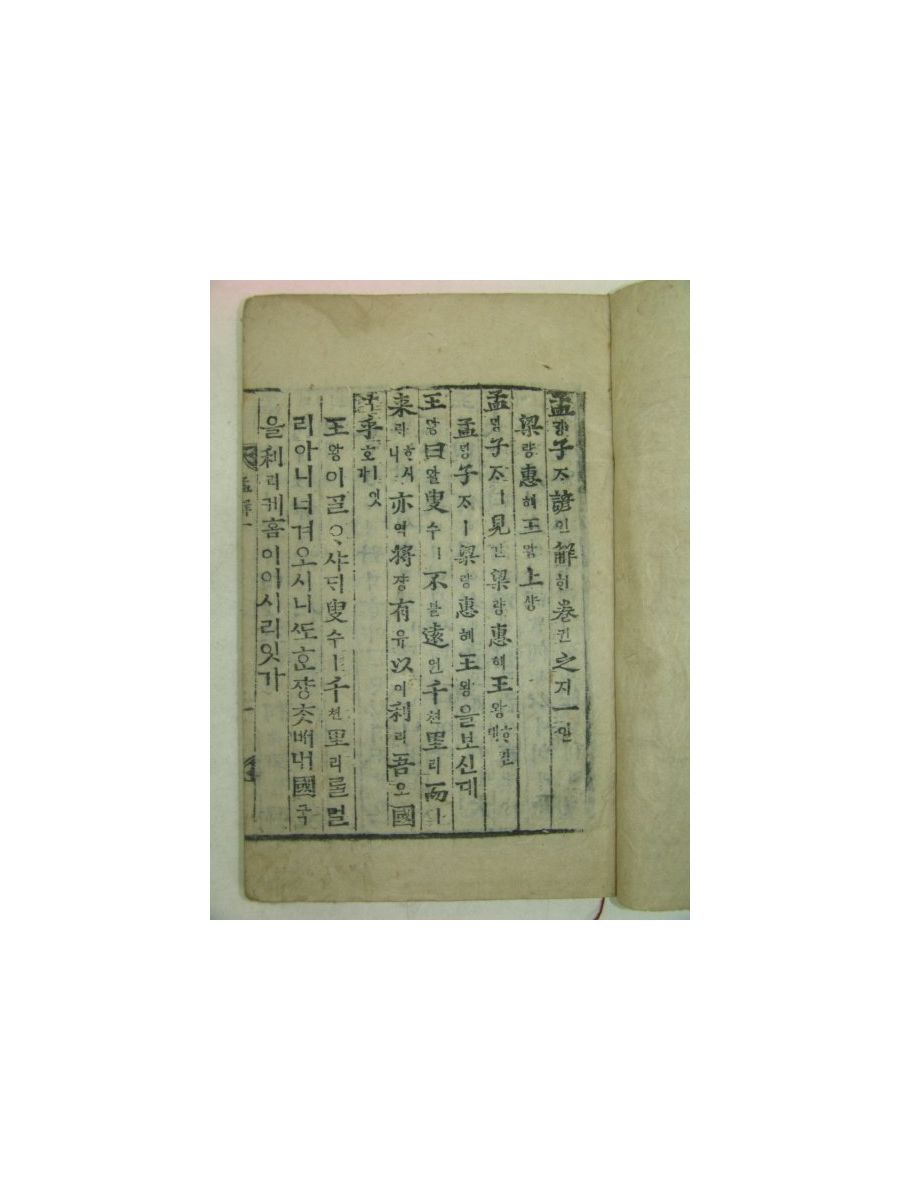 孟밍子ᄌᆞ諺언解ᄒᆡ卷권之지一일
梁량惠혜王왕上샹
孟ᄆᆡᆼ子ᄌᆞㅣ見견梁량惠혜王왕ᄒᆞ신대
孟ᄆᆡᆼ子ᄌᆞㅣ梁량惠혜王왕을보신대
王왕曰왈叟수ㅣ不블遠원千쳔里리而이
來ᄅᆡᄒᆞ시니亦역將쟝有유以이利리吾오國
乎호ㅣ잇가
王왕이ᄀᆞᆯᄋᆞ샤ᄃᆡ叟수ㅣ千쳔里리ᄅᆞᆯ멀
리아니녀겨오시니ᄯᅩᄒᆞᆫ쟝ᄎᆞᆺᄡᅥ내國국
을利리케홈이이시리잇가